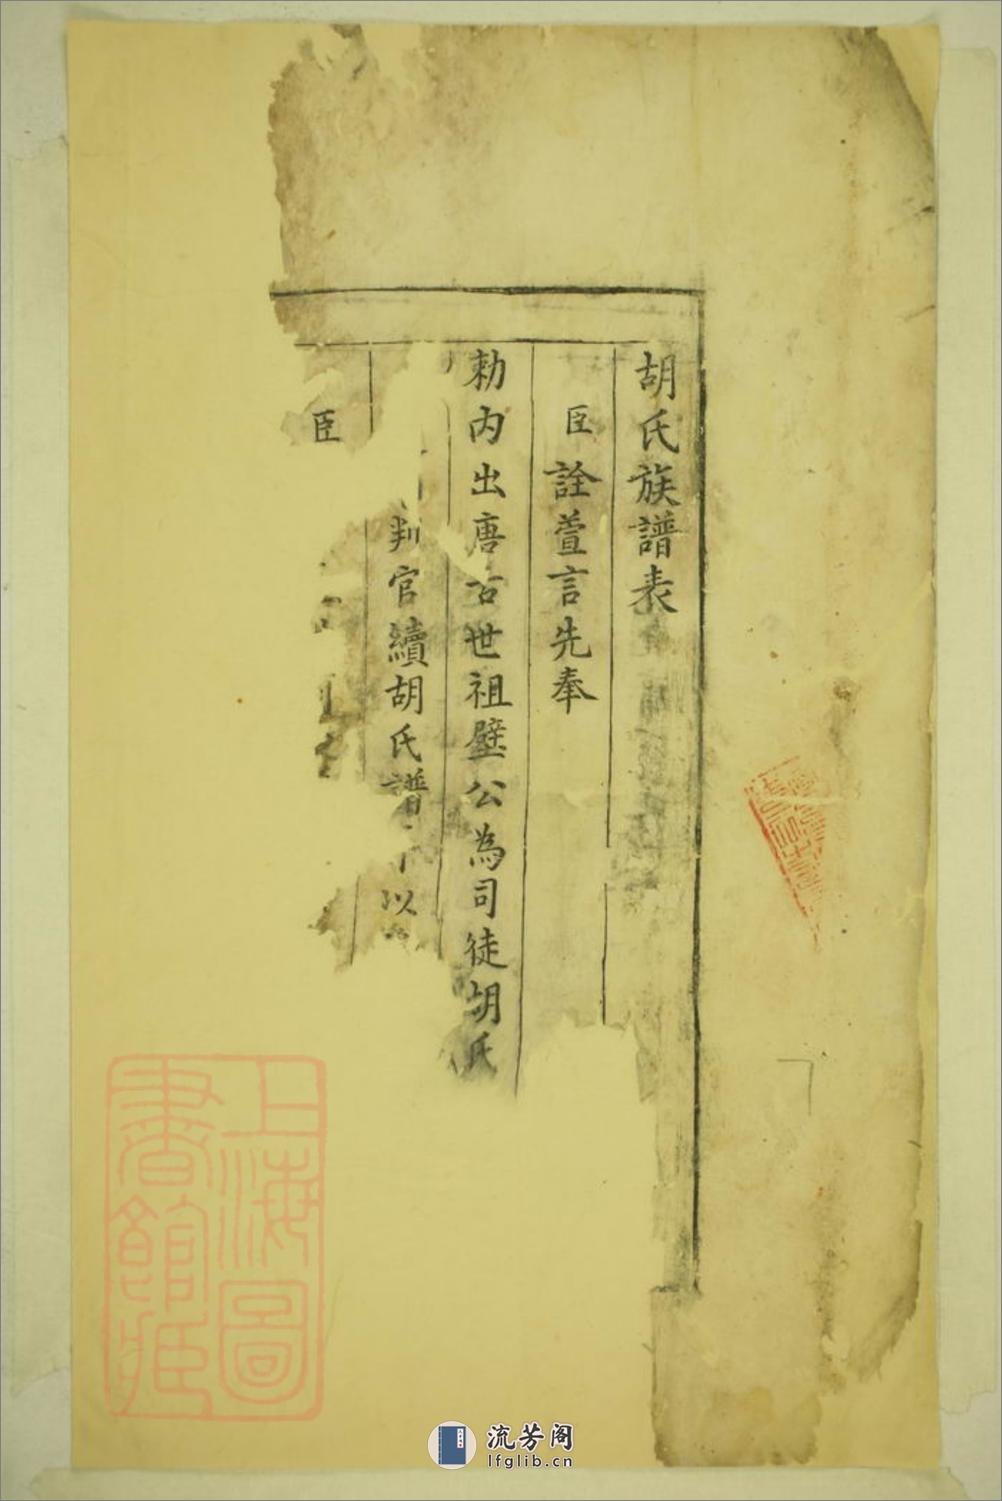 胡氏族譜表
臣詮萱言先奉
勅內出唐古世祖壁公為司徒胡氏
判官續胡氏譜
以
臣
上海圖書館藏
流芳阁
lfglib.cn